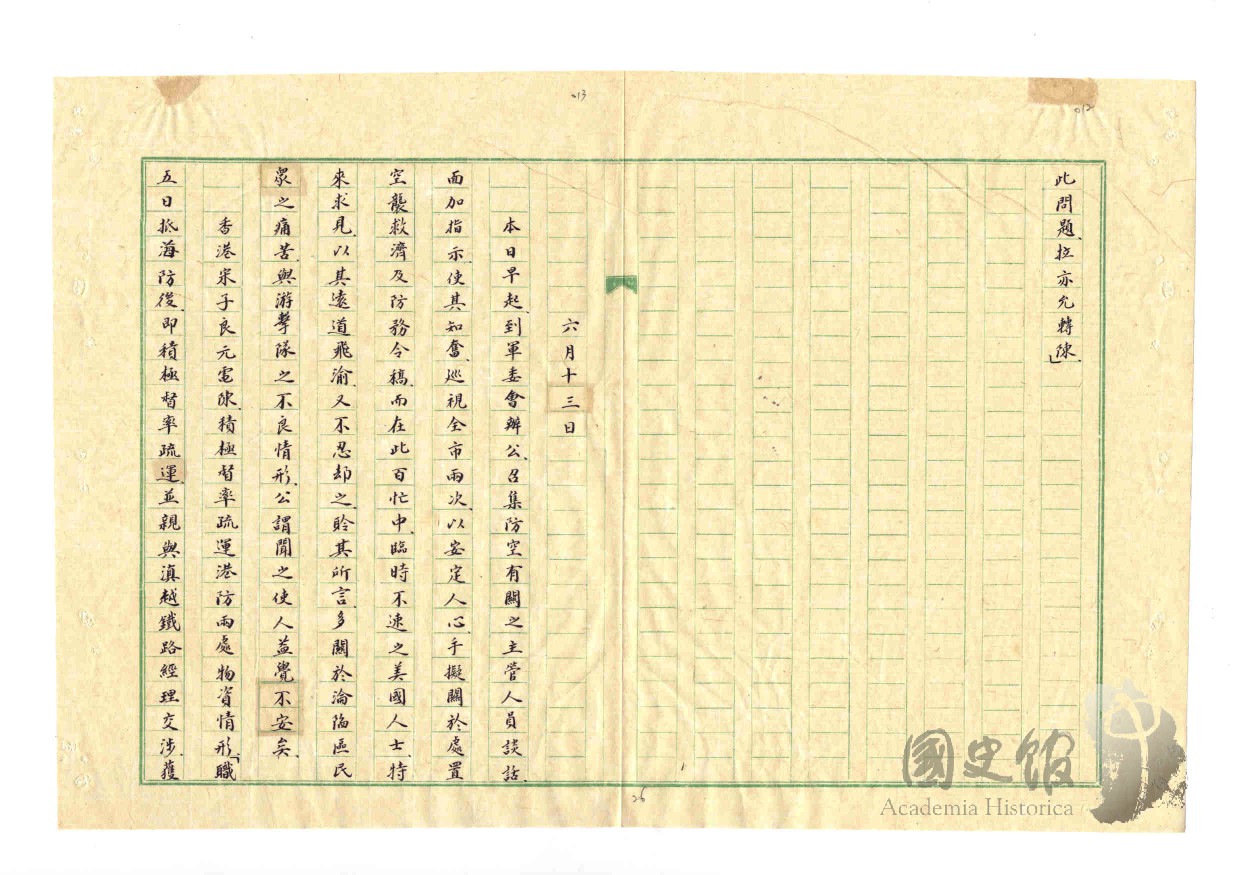 012
此問題拉亦允轉陳」
013
六月十三日
本日早起、到軍委會辦公、召集防空有關之主管人員談話、
面加指示、使其知奮、巡視全市兩次、以安定人心、手擬關於處置
空襲救濟及防務令稿、而在此百忙中、臨時不速之美國人士、特
來求見、以其遠道飛渝、又不忍却之、聆其所言、多關於淪陷區民
眾之痛苦、與游擊隊之不良情形、公謂聞之使人益覺不安矣、
香港宋子良元電陳、積極督率疏運港防兩處物資情形、「職
五日抵海防後、即積極督率疏運、並親與滇越鐵路經理交涉、獲
26
國史館
Academia Historica